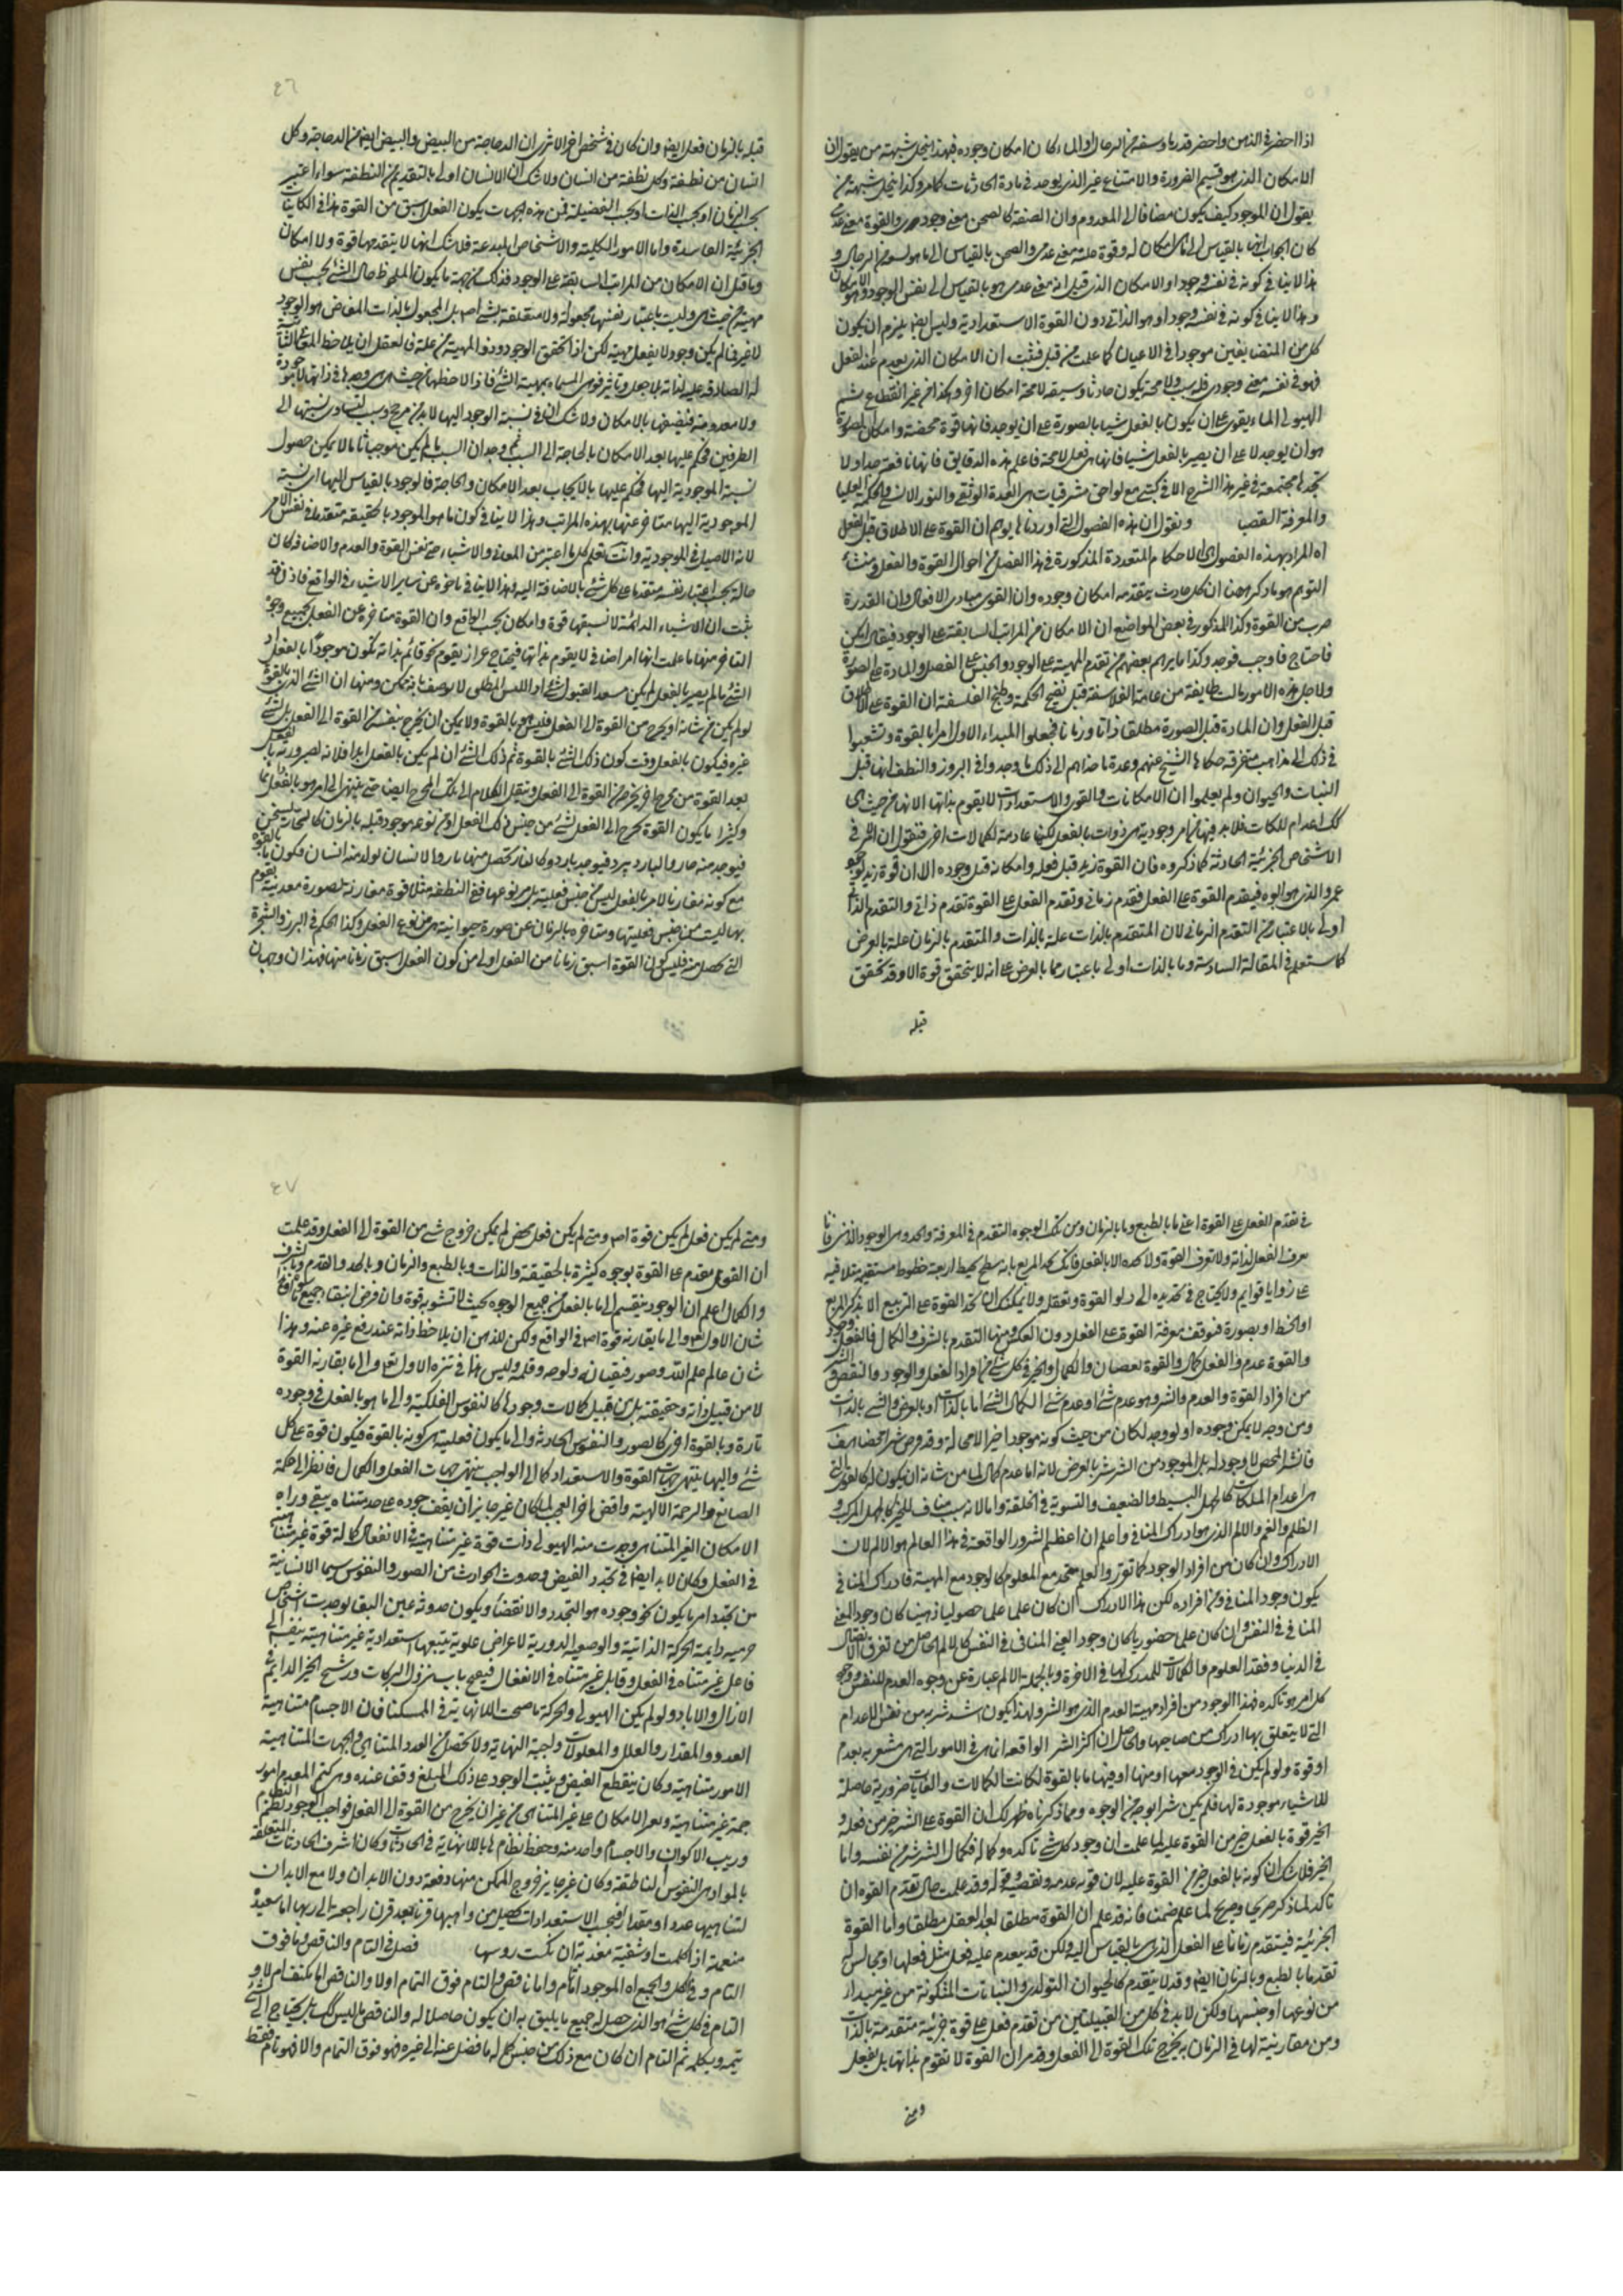 اذا احضر فى الذهن واحضر قدر ما وسفه من الرجال او الماء كان امكان وجوده فبهذا ينحل شبهة من يقول ان
الامكان الذى هو قسيم الضرورة والامتناع غير الذى يوجد فى مادة الحادثات كما مر وكذا ينحل شبهة من
يقول ان الموجود كيف يكون مضافا الى المعدوم وان الصفة كالصحن معنى وجودى والقوة معنى عدمى
كان الجواب انها بالقياس الى
هذا لا ينافى كونه فى نفسه وجودا والامكان الذى قيل انه معنى عدمى هو بالقياس الى نفس الوجود
وهذا لا ينافى كونه فى نفسه وجودا وهو الذاتى دون القوة الاستعدادية وليس ايضا يلزم ان يكون
كل من المتضايفين موجودا فى الاعيان كما علمت من قبل فثبت ان الامكان الذى يعدم عند الفعل
فهو فى نفسه معنى وجودى فله سبب ولا محة يكون حادثا وسبقه لا محة امكان اخر وهكذا من غير انقطاع ثم
الهيولى الماء يقوى على ان يكون بالفعل شيا بالصورة على ان يوجد فانها قوة محضة وامكان الصورة
هو ان يوجد لا على ان يصير بالفعل شيا فانها هى فعل لا محة فاعلم هذه الدقايق فانها نافعة جدا ولا
تجدها مجتمعة فى غير هذا الشرح الا فى كتبى مع لواحق مشرقيات هى العمدة الوثقى والنور الانسى والحكمة العليا
والمعرفة القصيا ونقول ان هذه الفصول التى اوردناها يوهم ان القوة على الاطلاق قبل الفعل
اه المراد بهذه الفصول هى الاحكام المتعددة المذكورة فى هذا الفصل من احوال القوة والفعل ومنشاء
التوهم هو ما ذكر ههنا ان كل حادث يتقدمه امكان وجوده وان القوى مبادى الافعال وان القدرة
ضرب من القوة وكذا المذكور فى بعض المواضع ان الامكان من المراتب السابقة على الوجود فيقال امكن
فاحتاج فاوجب فوجد وكذا ما يراهم بعضهم من تقدم المهية على الوجود والجنس على الفصل والمادة على الصورة
ولاجل هذه الامور مالت طايفة من عامة الفلاسفة قبل نضج الحكمة وطبخ الفلسفة ان القوة على الاطلاق
قبل الفعل وان المادة قبل الصورة مطلقا ذاتا وزمانا فجعلوا المبداء الاول امرا بالقوة وتشعبوا
فى ذلك الى مذاهب متفرقة حكاها الشيخ عنهم وعدة ما جذبهم الى ذلك ما وجدوا فى البروز والنطف انها قبل
النبات والحيوان ولم يعلموا ان الامكانات والقوى والاستعدادات لا يقوم بذاتها لانها من حيث هى
كك اعدام للملكات فلا بد فيها من امر وجودية هى ذوات بالفعل لكنها عادمة لكمالات اخرى فنقول ان الامر فى
الاشخاص الجزئية الحادثة كما ذكروه فان القوة زيد قبل فعله وامكانه قبل وجوده الا ان قوة زيد
عمرو الذى هو ابوه فيقدم القوة على الفعل فتقدم زمانى وتقدم الفعل على القوة تقدم ذاتى والتقدم الذاتى
اولى بالاعتبار من التقدم الزمانى لان المتقدم بالذات علة بالذات والمتقدم بالزمان علة بالعرض
كما ستعلم فى المقالة السادسة وما بالذات اولى باعتبار مما بالعرض على انه لا يتحقق قوة الا وقد تحقق
قبله
٤٦
قبله بالزمان فعل ايضا وان كان فى شخص اخر الا ترى ان الدجاجة من البيض والبيض ايضا من الدجاجة وكل
انسان من نطفة وكل نطفة من انسان ولا شك ان الانسان اولى بالتقديم من النطفة سواء اعتبر
بحسب الزمان او بحسب الذات او بحسب الفضيلة فمن هذه الجهات يكون الفعل اسبق من القوة هذا فى الكاينات
الجزئية الفاسدة واما الامور الكلية والاشخاص المبدعة فلا شك انها لا يتقدمها قوة ولا امكان
وما قيل ان الامكان من المراتب السابقة على الوجود فذلك من جهة ما يكون الملحوظ حال الشئ بحسب نفس
مهية من حيث هى وليست باعتبار نفسها مجعولة ولا متعلقة بشئ اصلا بل المجعول بالذات المفاض هو الوجود
لا غير فما لم يكن وجود لا يفعل مهية لكن اذا تحقق الوجود وذو المهية من علة فالعقل ان يلاحظ المعانى الثابتة
له الصادقة عليه لذاته بلا جعل وتاثير فهى المسماة بمهية الشئ فاذا لاحظها من حيث هى وجدها فى ذاتها لا موجودة
ولا معدومة فيصفها بالامكان ولا شك ان فى نسبة الوجود اليها لا بد من مرجح وسبب لتساوى نسبتها الى
الطرفين فحكم عليها بعد الامكان بالحاجة الى السبب ثم وجد ان السبب ما لم يكن موجبا تاما لا يمكن حصول
نسبة الموجودية اليها فحكم عليها بالايجاب بعد الامكان والحاجة فالوجود بالقياس اليها اى نسبة
الموجودية اليها متاخر عنها بهذه المراتب وهذا لا ينافى كون ما هو الموجود بالحقيقة متقدما فى نفس الامر
لانه الاصيل فى الموجودية وانت تعلم كل ما اعتبر من المعانى والاشياء حتى نفس القوة والعدم والاضافة كان
حالة بحسب اعتبار نفسه متقدما على كل شئ بالاضافة اليه وهذا لا ينافى تاخره عن ساير الاشياء فى الواقع فاذن قد
ثبت ان الاشياء الدائمة لا تسبقها قوة وامكان بحسب الواقع وان القوة متاخرة عن الفعل بجميع وجوه
التاخر منها ما علمت انها امر اضافى لا يقوم بذاتها فيحتاج
الشئ ما لم يصير بالفعل لم يكن مستعد القبول شئ او الليس المطلق لا يوصف بانه ممكن ومنها ان الشئ الذى بالقوة
لو لم يكن من شانه ان يخرج من القوة الى الفعل فليس هو بالقوة ولا يمكن ان يخرج بنفسه من القوة الى الفعل بل شئ
غيره فيكون بالفعل وقت كون ذلك الشئ بالقوة ثم ذلك الشئ ان لم يكن بالفعل ابدا فلانه لصيرورته بالفعل
بعد القوة من مخرج اخر يخرج من القوة الى الفعل وينقل الكلام الى ذلك المخرج ايضا حتى ينتهى الى امر هو بالفعل دائما
وكثيرا ما يكون القوة تخرج الى الفعل لشئ من جنس ذلك الفعل او من نوعه موجود قبله بالزمان كالحار يسخن
فيوجد منه حار والبارد يبرد فيوجد بارد وكالنار تحصل منها نار والانسان يولد منه انسان فيكون بالقوة
مع كونه مقارنا لامر بالفعل ليس من جنس فعلية بل من نوعها ففى النطفة مثلا قوة مقارنة لصورة معدنية يقوم
بها ليست من جنس فعليتها ومتاخرة بالزمان عن صورة حيوانية هى من نوع الفعل وكذا الحكم فى البرز والشجرة
التى تحصل منه فليس كون القوة اسبق زمانا من الفعل اولى من كون الفعل اسبق زمانا منها فهذان وجهان
فى تقدم الفعل على القوة اعنى ما بالطبع وما بالزمان ومن تلك الوجوه التقدم فى المعرفة والحد
يعرف الفعل لذاته ولا تعرف القوة ولا تحده الا بالفعل فانك تحد المربع بانه سطح يحيط اربعة خطوط مستقيمة متلاقية
على زوايا قوايم ولا يحتاج فى تحديده الى درك القوة وتعقله ولا يمكنك ان تحد القوة على التربيع الا بذكر المربع
او الخط او بصورة فتوقف معرفة القوة على الفعل دون العكس ومنها التقدم بالشرف والكمال فالفعل وجود
والقوة عدم والفعل كمال والقوة نقصان والكمال والخير فى كل شئ من افراد الفعل والوجود والنقص والشر
من افراد القوة والعدم والشر هو عدم شئ او عدم شئ الكمال للشئ اما بالذات او بالعرض والشئ بالذات
ومن وجه لا يمكن وجوده اولو وجد لكان من حيث كونه موجود اخير الا محالة وقد فرض شرا محضا هف
فالشر المحض لا وجود له بل الموجود من الشر شر بالعرض لانه اما عدم كمال لما من شانه ان يكون له كالقوى التى
هى اعدام الملكات كالجهل البسيط والضعيف والتسوية فى الخلقة واما لانه سبب مناف للخير كالجهل المركب و
الظلم والغم والالم الذى هو ادراك المنافى واعلم ان اعظم الشرور الواقعة فى هذا العالم هو الالم لان
الادراك وان كان من افراد الوجود كما تقرر والعلم متحد مع المعلوم كالوجود مع المهية فادراك المنافى
يكون وجود المنافى ومن افراده لكن هذا الادراك ان كان علما على حصوليا ذهنيا كان وجود المعنى
المنافى فى النفس وان كان على حضوريا كان وجود العين المنافى فى النفس كالالم الحاصل من تفرق الاتصال
فى الدنيا وفقد العلوم والكمالات للمدرك لها فى الاخرة وبالجملة الالم عبارة عن وجوه العدم للنفس ووجود
كل امر هو تاكده فهذا الوجود من افراد مهية العدم الذى هو الشر ولهذا يكون اشد شرية من نفس الاعدام
التى لا يتعلق بها ادراك من صاحبها والحاصل ان اكثر الشر الواقعة انما هى فى الامور التى هى مشعر به بعدم
او قوة ولو لم يكن فى الوجود معها او منها او فيها ما بالقوة لكانت الكمالات والغايات ضرورية حاصلة
للاشياء موجودة لها فلم يكن شر بوجه من الوجوه ومما ذكرناه ظهر لك ان القوة على الشر خير من فعله و
الخير قوة بالفعل خير من القوة عليه لما علمت ان وجود كل شئ تاكده وكماله فكمال الشر شر من نفسه واما
الخير فلا شك ان كونه بالفعل خير من القوة عليه لان قوته عدمه ونقصه وقد علمت حال تقدم القوة ان
تاكد لما ذكر صريحا وصريح لما علم ضمنا فانه قد علم ان القوة مطلقا بعد الفعل مطلقا واما القوة
الجزئية فيتقدم زمانا على الفعل الذى بالقياس اليه ولكن قد يعدم عليه فعل مثل فعلها او مجانس له
تقدما بالطبع وبالزمان ايضا وقد لا يتقدم كالحيوان التولدى والنباتات المتكونة من غير مبدا
من نوعها او جنسها ولكن لا بد فى كل من القبيلتين من تقدم فعل على قوة جزئية متقدمة بالذات
ومن مقارنية لها فى الزمان به يخرج تلك القوة الى الفعل وقد مر ان القوة لا تقوم بذاتها بل بفعل
ومتى
٤٧
ومتى لم يكن فعل لم يكن قوة اصلا ومتى لم يكن فعل محض لم يكن خروج شئ من القوة الى الفعل وقد علمت
ان الفعل مقدم على القوة بوجوه كثيرة بالحقيقة والذات وبالطبع والزمان وبالحد والقدم وبالشرف
والكمال اعلم ان الوجود ينقسم الى ما بالفعل من جميع الوجوه بحيث لا تشوبه قوة وان فرض انتفاء جميع ما
شان الاول تعالى والى ما يقارنه قوة اصلا فى الواقع ولكن للذهن ان يلاحظ ذاته عند رفع غيره عنه وهذا
شان عالم علم الله وصور قضائه ولوحه وقلمه وليس هذا فى تنزه الاول تعالى والى ما يقارنه القوة
لا من قبيل ذاته وحقيقته بل من قبيل كمالات وجوده كالنفوس الفلكية والى ما هو بالفعل فى وجوده
تارة وبالقوة اخرى كالصور والنفوس الحادثة والى ما يكون فعليته هى كونه بالقوة فيكون قوة على كل
شئ واليها ينتهى جهات القوة والاستعداد كما الى الواجب ينتهى جهات الفعل والكمال فانظر الى حكمة
الصانع والرحمة الالهية واقض اخر العجب لما كان غير جايز ان يقف جوده على حد متناه يبقى وراءه
الامكان الغير المتناهى وجدت منه الهيولى ذات قوة غير متناهية فى الانفعال كما له قوة غير متناهية
فى الفعل وكان لا بد ايضا فى تجدد الفيض وحدوث الحوادث من الصور والنفوس سيما الانسانية
من تجدد امر ما يكون نحو وجوده هو التجدد والانقضاء ويكون حدوثه عين البقا لوجدت اشخاص
جرمية دايمة الحركة الذاتية والوضعية الدورية لاعراض علوية يتبعها استعدادية غير متناهية ينضم الى
فاعل غير متناه فى الفعل وقابل غير متناه فى الانفعال فيفتح باب نزول البركات ورشح الخير الدايم فى
الازال والاباد ولو لم يكن الهيولى والحركة ما صحت اللانهاية فى الممكنات فان الاجسام متناهية
العدد والمقدار والعلل والمعلولات واجبة النهاية ولا تحصل من العدد المتناهى والجهات المتناهية
الامور متناهية وكان ينقطع الفيض ويثبت الوجود على ذلك المبلغ وقف عنده وهى كتم العدم امور
جمة غير متناهية وبعد الامكان على غير المتناهى من غير ان يخرج من القوة الى الفعل فواجب الوجود نظم النظام
وريب الاكوان والاجسام واحد منه وحفظ نظامها باللانهاية فى الحادثات وكان اشرف الحادثات المتعلقة
بالمواد هى النفوس الناطقة وكان غير جايز خروج الممكن منها دفعة دون الابدان ولا مع الابدان
لتناهيها عددا ومقدارا فبحسب الاستعدادات تحصيل من واهبها قرنا بعد قرن راجعة الى ربها اما سعيدة
منعمة اذا كملت او شقية معذبة ان نكست روسها فصل فى التام والناقص وما فوق
التمام وفى الكل والجميع اه الموجود اما تام واما ناقص والتام فوق التمام اولا والناقص اما مكتف ام لا و
التام فى كل شئ هو الذى حصل له جميع ما يليق به ان يكون حاصلا له والناقص ما ليس كك بل يحتاج الى شئ
يتمه ويكمله ثم التام ان كان مع ذلك من جنس كماله ما فضل عنه الى غيره فهو فوق التمام والا فهو تام فقط